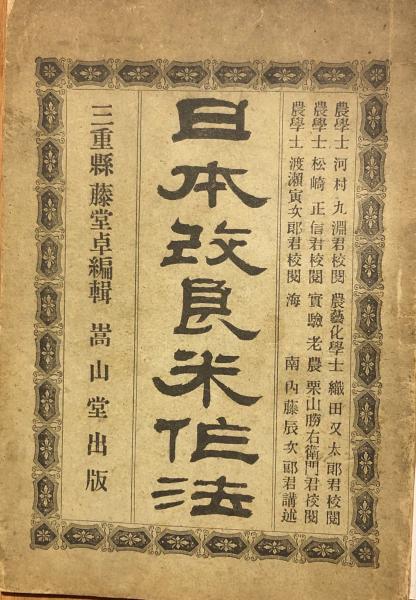 農學士 河村九淵君校閱 農藝化學士 織田又太郎君校閱
農學士 松崎正信君校閱 實驗老農 栗山勝右衛門君校閱
農學士 渡瀨寅次郎君校閱 海南 內藤辰次郎君講述
日本改良米作法
三重縣 藤堂卓編輯 嵩山堂出版